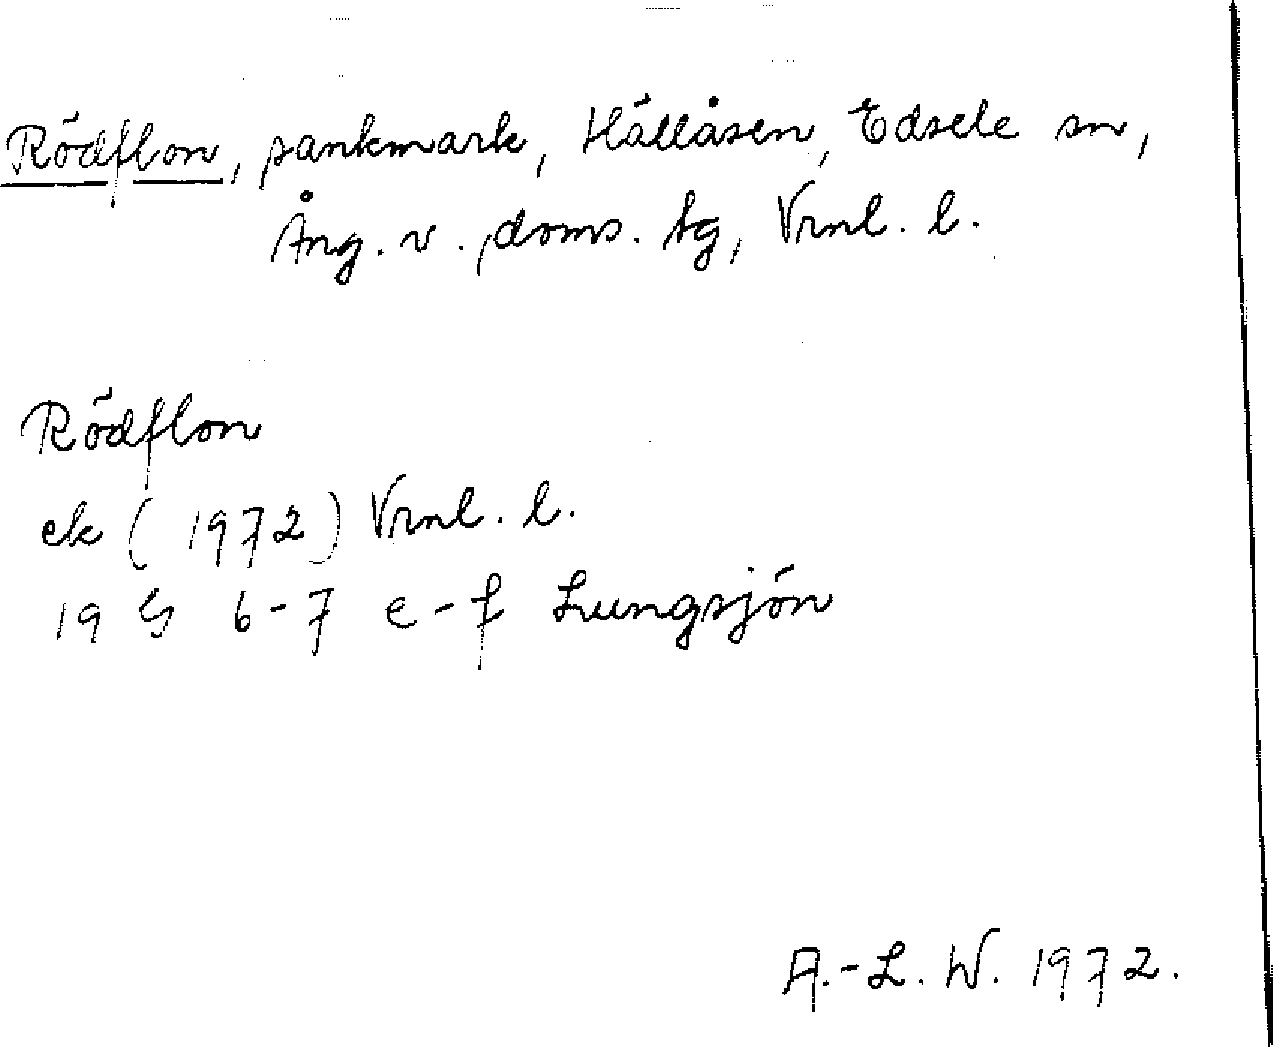 Rödflon, sankmark, Hällåsen, Edsele sn,
Ång. v. doms. tg, Vrnl. l.
Rödflon
ek (1972) Vrnl. l.
19 G 6-7 e-f Lungsjön
A.-L. W. 1972.